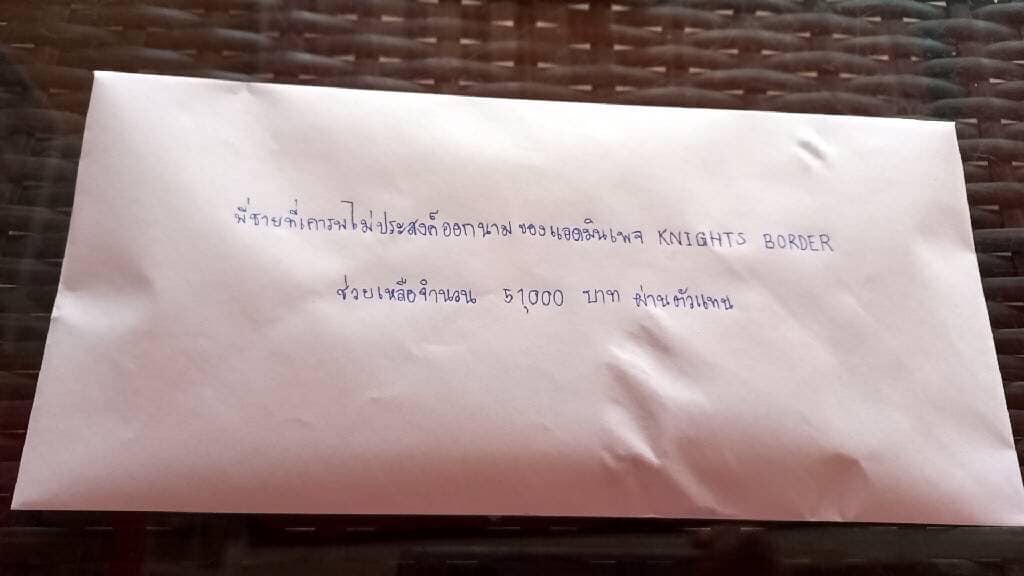 พี่ชายที่เคารพไม่ประสงค์ออกนาม ของแอดมินเพจ KNIGHTS BORDER
ช่วยเหลือจำนวน 51,000 บาท ผ่านตัวแทน